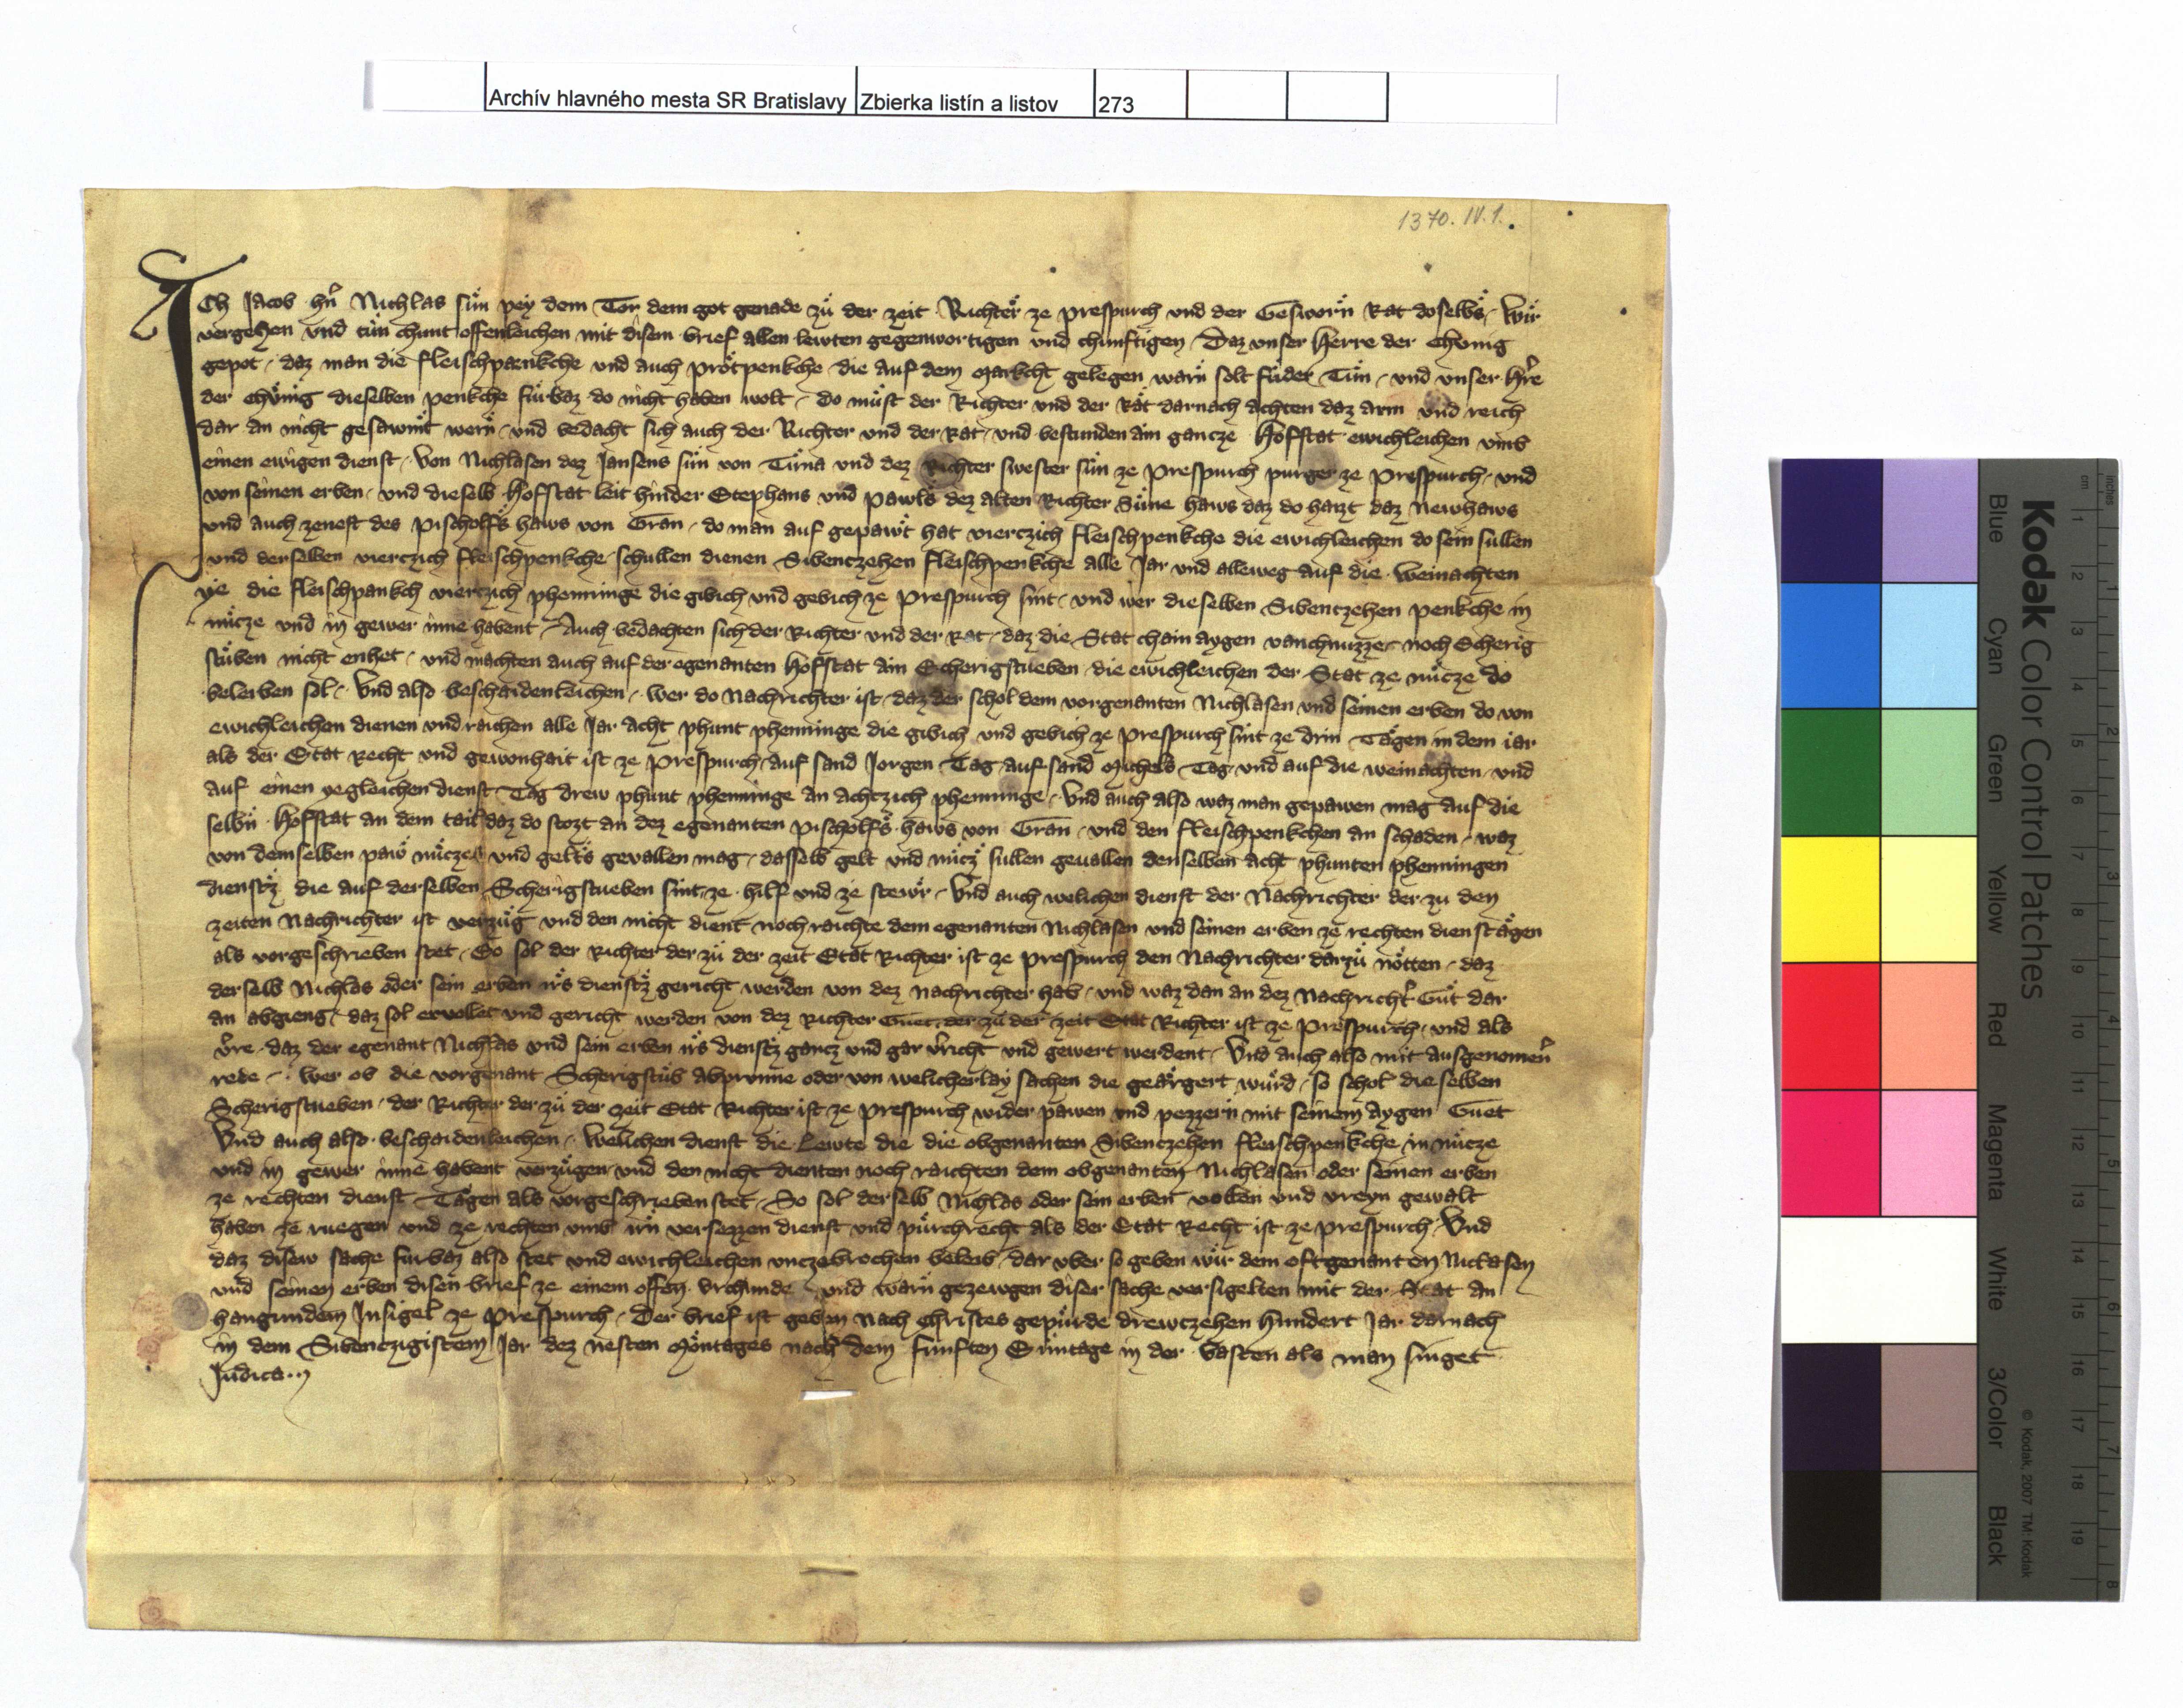 Archív hlavného mesta SR Bratislavy Zbierka listín a listov 273
1370. IV. 1.
Ich Jacob hn̄ Nichlas sůn pey dem Tor dem got genade zů der zeit Richter ze prespurch vnd der Gesworn Rat doselbs, Wir
vergehen vnd tůn chunt offenleichen mit disem brief allen lewten gegenwortigen vnd chunftigen Daz vnser Herre der Chunig
gepot, daz man die fleischpaenkche vnd auch prőtpenkche die auf dem Markcht gelegen warn solt fuder Tůn, vnd vnser Hr̄e
der Chűnig dieselben penkche fürbaz do nicht haben wolt, do můst der Richter vnd der Rat darnach achten daz arm vnd reich
dar an nicht gesawmt wern, vnd bedacht sich auch der Richter vnd der Rat, vnd bestunden ain gancze Hofstat ewichleichen vmb
einen ewigen dienst, Von Nichlasen dez Jansens sůn von Tirna vnd dez Richter swester sůn ze prespurch purger ze prespurch, vnd
von seinen erben, vnd dieselb Hofstat leit hinder Stephans vnd pawls dez alten Richter Sůne haws daz do haizt daz Newhaws
vnd auch zenest des pischolfs haws von Gran, do man auf gepawt hat vierczich fleischpenkche die ewichleichen do sein sullen
vnd derselben vierczich fleischpenkche schullen dienen Sibenczehen fleischpenkche alle Jar vnd alleweg auf die Weinachten
ye die fleischpankch vierczich phenninge die gibich vnd gebich ze prespurch sint, vnd wer dieselben Sibenczehen penkche in
nucze vnd in gewer inne habent, Auch bedachten sich der Richter vnd der Rat, daz die Stat chain aygen vanchnuzze noch Scherig
stuben nicht enhet, vnd machten auch auf der egenanten Hofstat ain Scherigstueben die ewichleichen der Stat ze nucze do
beleiben sol, Vnd also beschaidenleichen, wer do Nachrichter ist, daz der schol dem vorgenanten Nichlasen vnd seinen erben do von
ewichleichen dienen vnd raichen alle Jar acht phunt phenninge die gibich vnd gebich ze prespurch sint ze drin Tagen in dem iar
als der Stat Recht vnd gewonhait ist ze prespurch, auf sand Jorgen Tag auf sand Michels Tag vnd auf die weinachten, vnd
auf einen yegleichen dienst Tag drew phunt phenninge an achczich phenninge, Vnd auch also waz man gepawen mag auf die
selbn Hofstat an dem tail daz do stozt an dez egenanten pischolfs haws von Gran, vnd den fleischpenkchen an schaden, waz
von demselben paw nuczes vnd gelts gevallen mag, dasselb gelt vnd nucz sullen gevallen denselben acht phunten phenningen
dienstz die auf derselben Scherigstueben sint, ze hilf vnd ze stewr, Vnd auch welichen dienst der Nachrichter der zu den
zeiten Nachrichter ist verzug vnd den nicht dient noch raichte dem egenanten Nichlasen vnd seinen erben ze rechten dienstagen
als vorgeschrieben stet, So sol der Richter der zů der zeit Stat Richter ist ze prespurch den Nachrichter darzů nőtten, daz
derselb Nichlas oder sein erben irs dienstz gericht werden von dez nachrichter hab, vnd waz dan an dez Nachricht̄ Gůt dar
an abgieng, daz sol ervollet vnd gericht werden von dez Richter Guet, der zu der zeit Stat Richter ist ze prespurch, vnd als
v̄re, daz der egenant Nichlas vnd sein erben irs dienstz gancz vnd gar v̄richt vnd gewert werdent, Vnd auch also mit ausgenomen
rede, Wer ob die vorgenant Scherigstub abprunne oder von welicherlay sachen die geargert wurd, so schol dieselben
Scherigstueben, der Richter der zů der zeit Stat Richter ist ze prespurch wider pawen vnd pezzern mit seinem aygen Guet
Vnd auch also beschaidenleichen, Welichen dienst die Lewte die die obgenanten Sibenczehen fleischpenkche in nucze
vnd in gewer inne habent verzugen, vnd den nicht dienten noch raichten dem obgenanten Nichlasen oder seinen erben
ze rechten dienst Tagen als vorgeschrieben stet, So sol derselb Nichlas oder sein erben vollen vnd vreyn gewalt
haben ze ruegen vnd ze rechten vmb irn versezzen dienst vnd purchrecht als der Stat Recht ist ze prespurch, Vnd
daz disew sache furbaz also stet vnd ewichleichen vnczebrochen beleib, dar vber so geben wir dem oftgenanten Niclasen
vnd seinen erben disen brief ze einem offen vrchunde, vnd warn gezewgen diser sache versigelten mit der Stat an
hangundem Insigel ze prespurch, Der brief ist geben Nach Christes gepurde drewczehen Hundert Jar darnach
in dem Sibenczigistem Jar dez nesten Montages nach dem funften Suntage in der Vasten als man singet
Judica
Kodak Color Control Patches
© Kodak, 2007 TM: Kodak
Blue Cyan Green Yellow Red Magenta White 3/Color Black
inches 1 2 3 4 5 6 7 8
cm 1 2 3 4 5 6 7 8 9 10 11 12 13 14 15 16 17 18 19